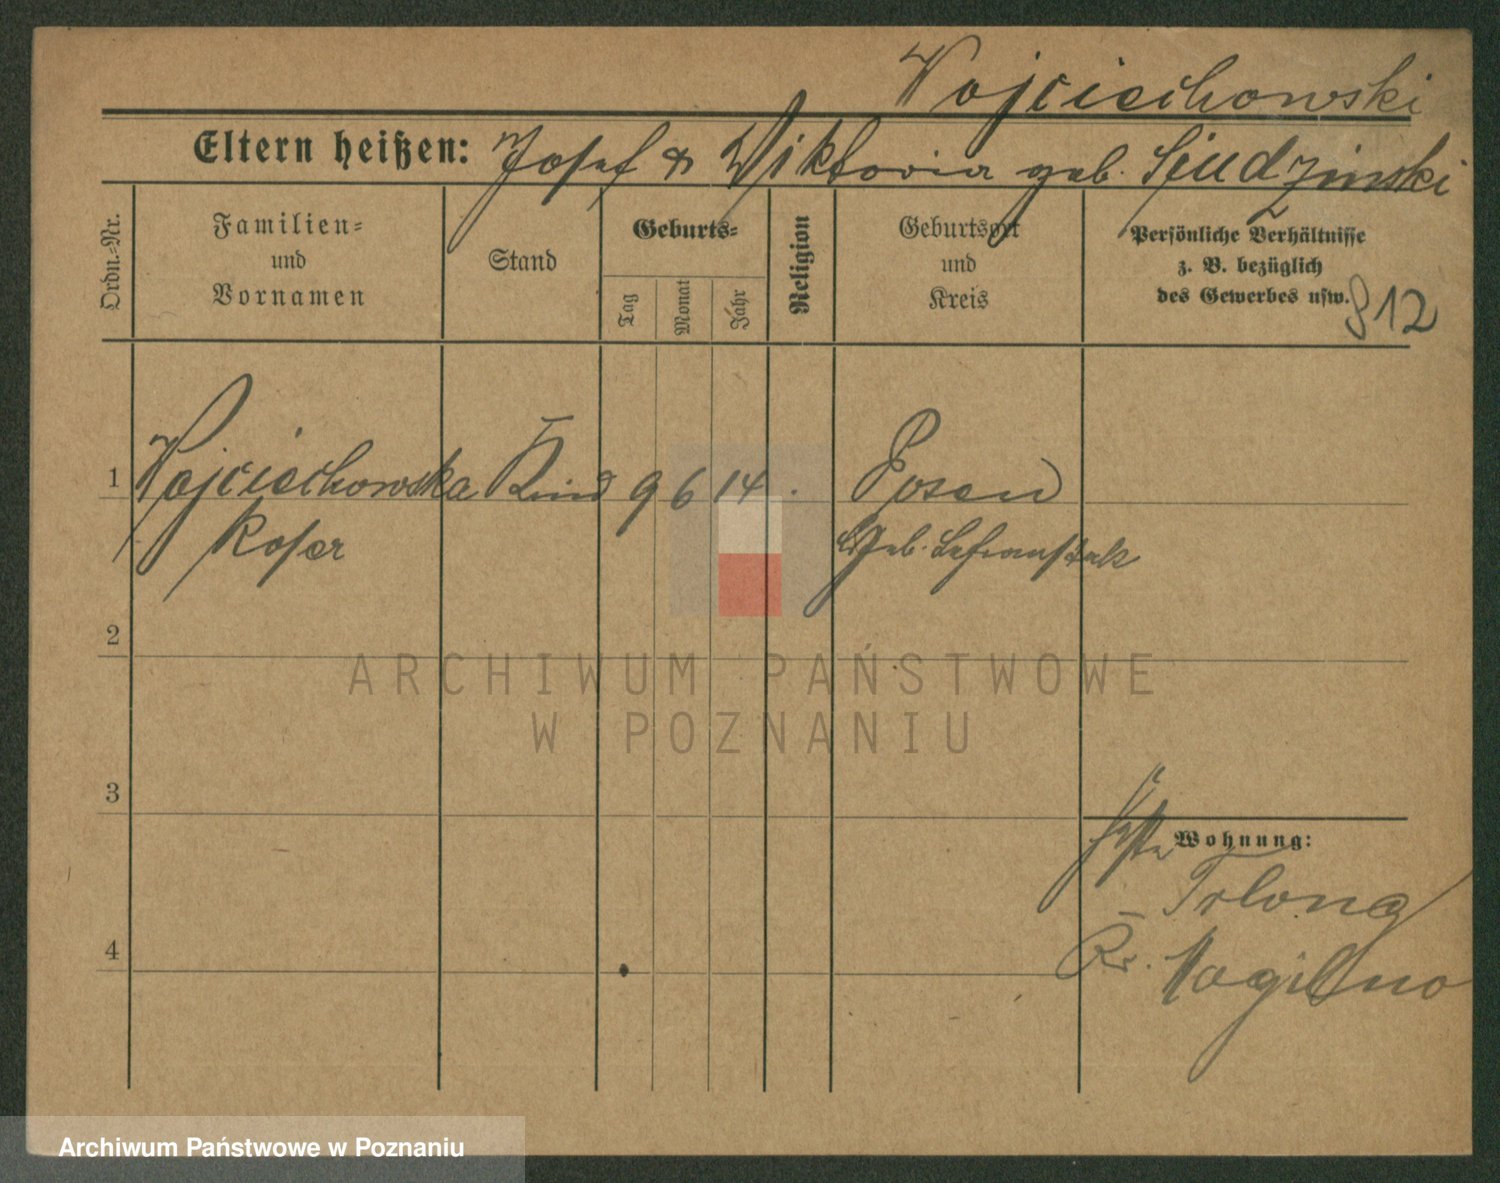 Wojciechowski
Eltern heißen: Josef & Viktoria geb. Sjudzinski
Ordn.-Nr.
Familien-
und
Vornamen
Stand
Geburts-
Tag
Monat
Jahr
Religion
Geburtsort
und
Kreis
Persönliche Verhältnisse
z. B. bezüglich
des Gewerbes usw.
812
1 Wojciechowska Kind 9 6 14. Posen
Geb.
2
ARCHIWUM PAŃSTWOWE
W POZNANIU
3
Wohnung:
Trlong
4 Kr. Mogilno
Archiwum Państwowe w Poznaniu